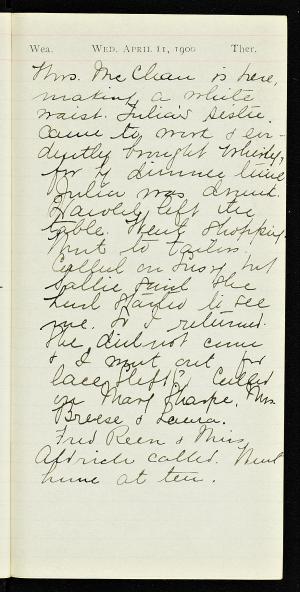 Wea. WED. APRIL 11, 1900 Ther.
Mrs. McClean is here,
making a white
waist. Julia's sister
came to work & evi-
dently brought whisky,
for by dinner time
Julia was drunk.
Hardly left the
table. Went shopping.
Went to tailors.
Called on Susy but
Sallie said she
had started to see
me. So I returned.
She did not come
& I went out for
lace & left? Called
on Mary Sharpe, Mrs.
Breese & Laura.
Fred Keen & Miss
Aldrich called. Went
home at ten.